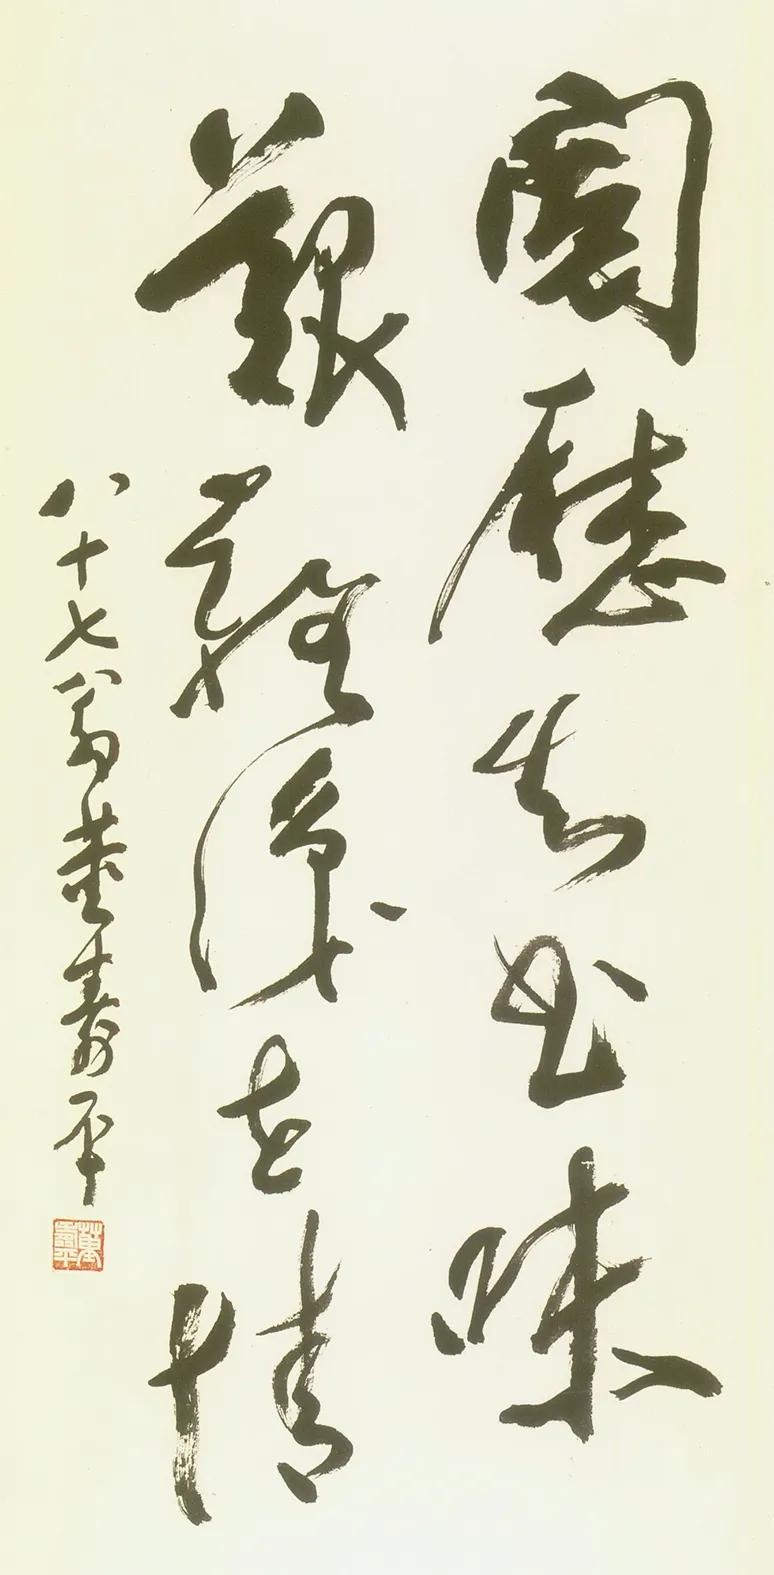 閱歷知書味
艱難識世情
八十七翁董壽平
董壽平